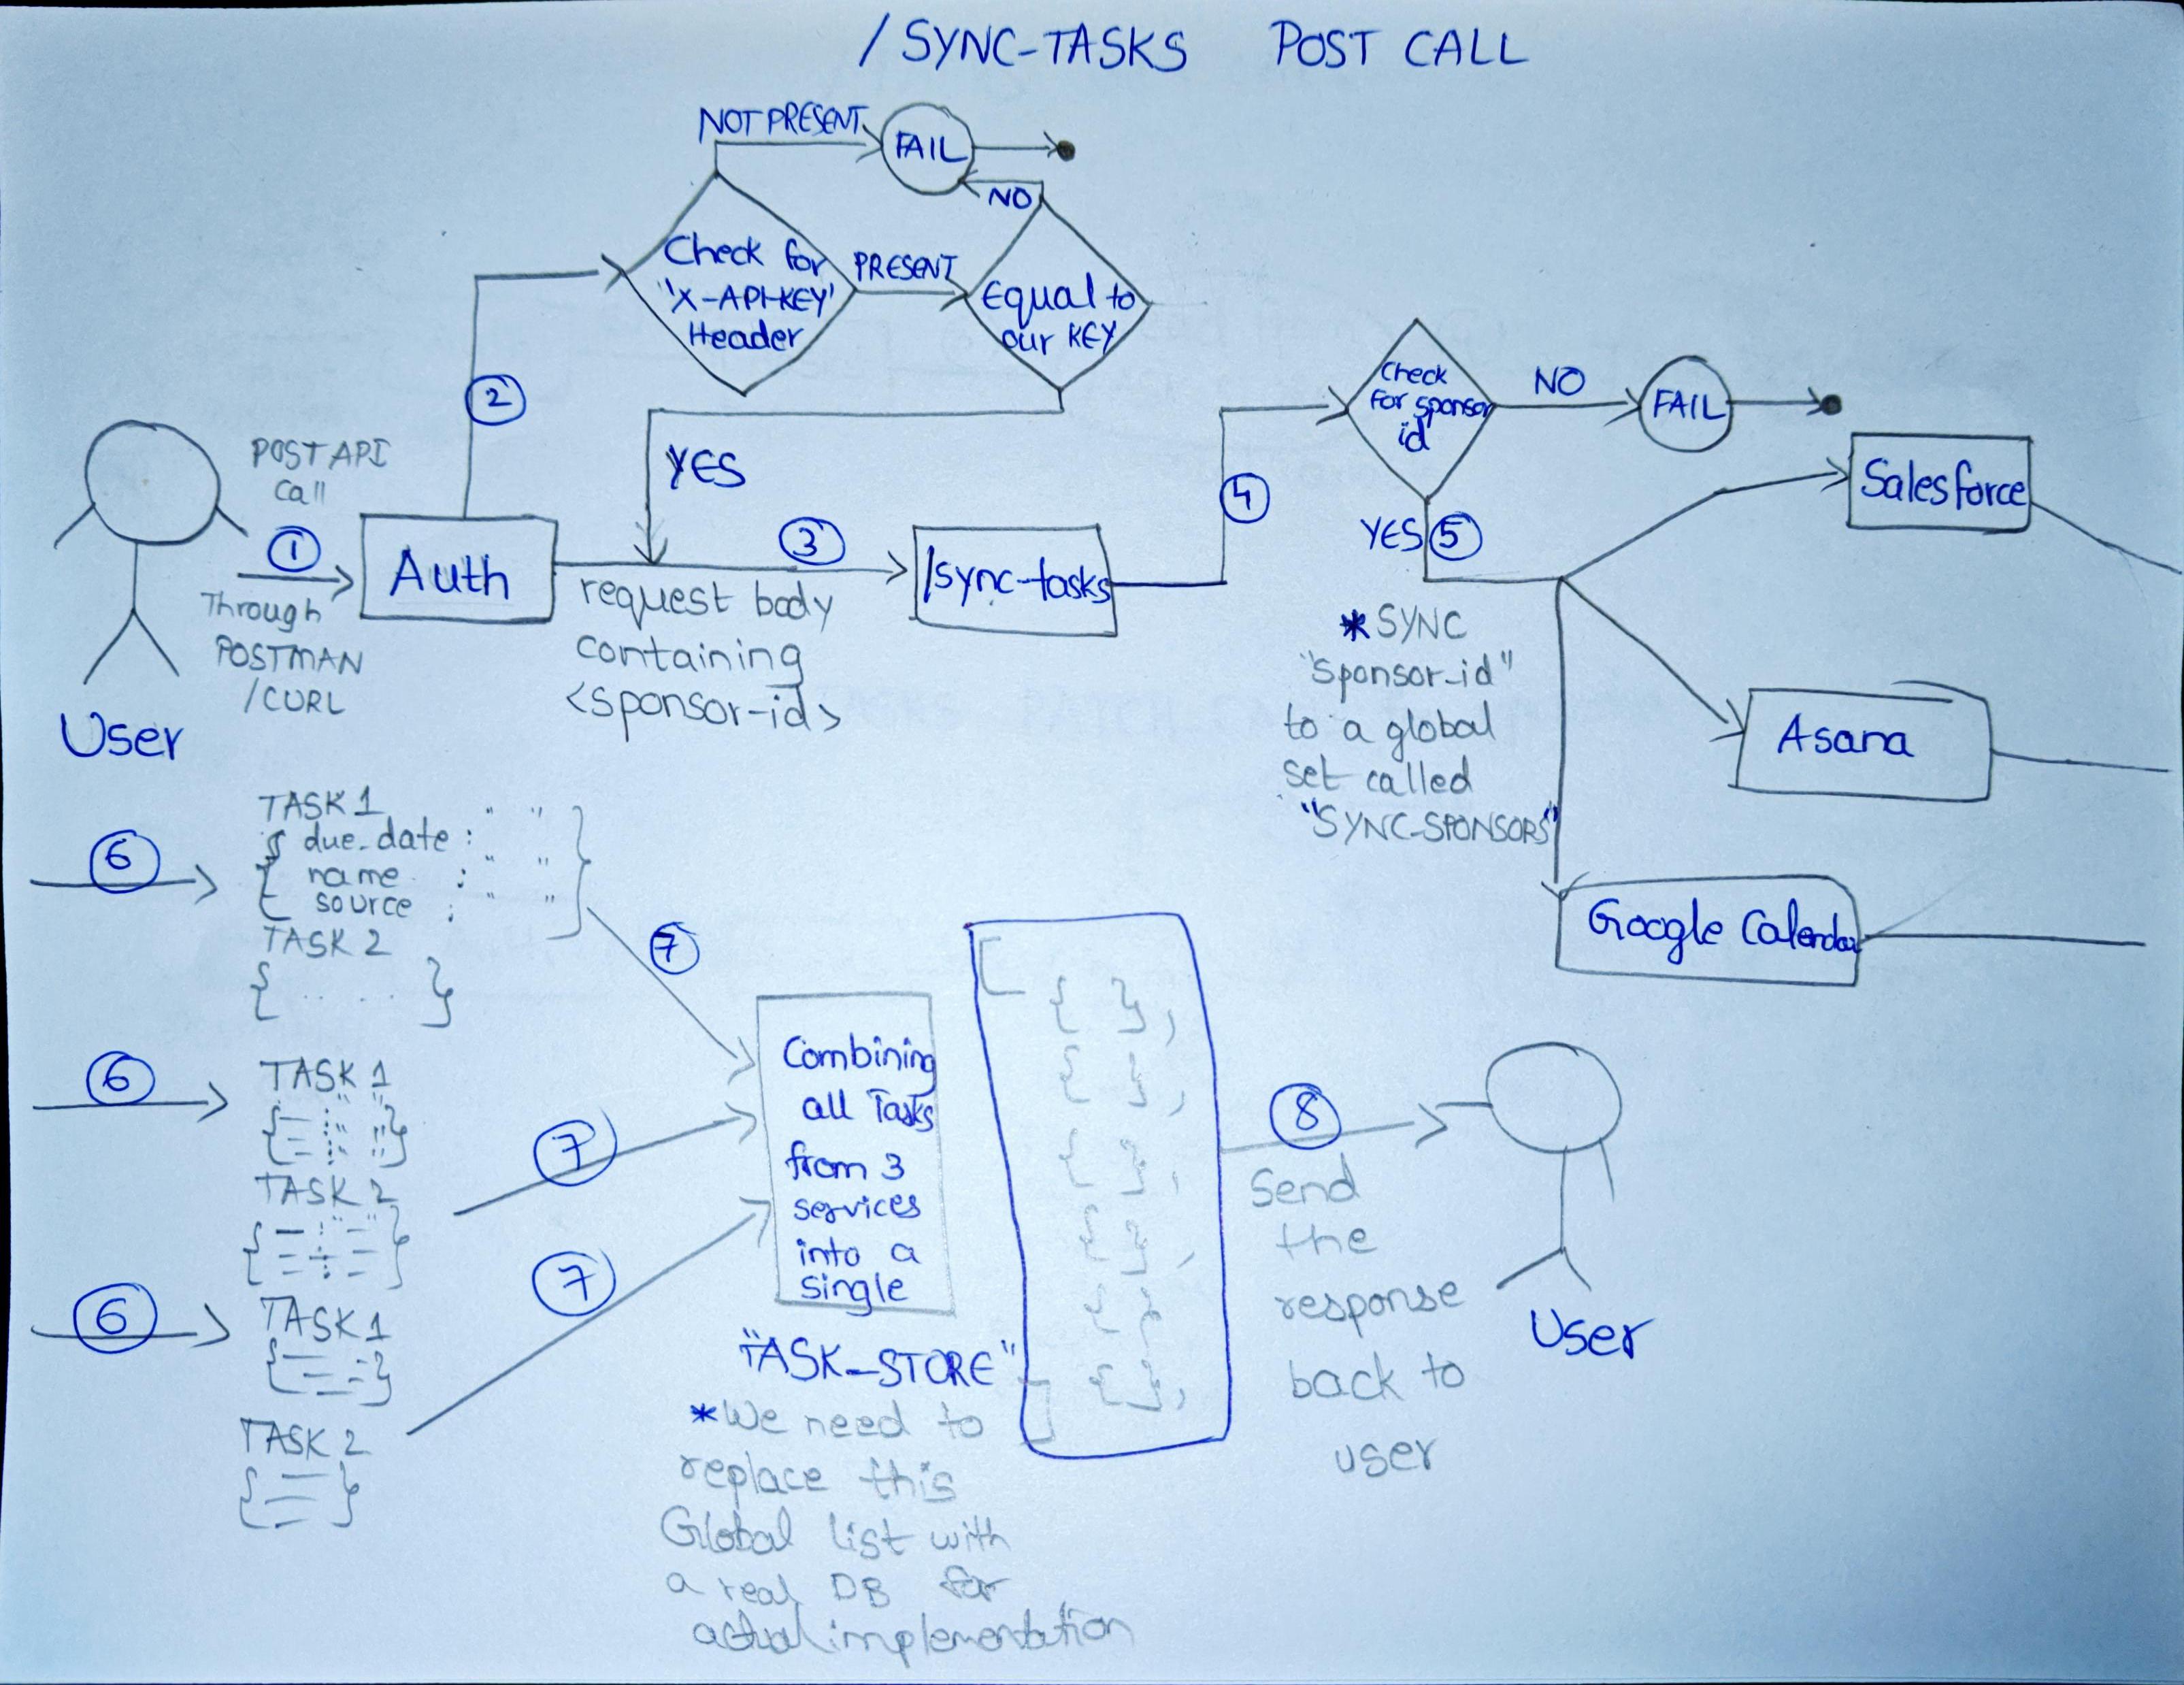 /SYNC-TASKS POST CALL
NOT PRESENT
FAIL
NO
Check for
"X-API-KEY'
Header
PRESENT
Equal to
our KEY
2
YES
POST API
Call
1
Through
POSTMAN
/CURL
User
Auth
3
request body
containing
<sponsor-id>
/sync-tasks
4
Check
for sponsor
id
NO
FAIL
YES 5
* SYNC
"sponsor-id"
to a global
set called
"SYNC-SPONSORS"
Salesforce
Asana
Google Calendar
6
TASK 1
{ due-date : " "
name : " "
source : " " }
TASK 2
{ .. . . . }
7
6
TASK 1
TASK 2
7
6
TASK 1
TASK 2
7
Combining
all Tasks
from 3
services
into a
single
"TASK_STORE"
*We need to
replace this
Global list with
a real DB for
actual implementation
[
{ },
{ },
{ },
{ },
{ }
{ },
]
8
Send
the
response
back to
user
User